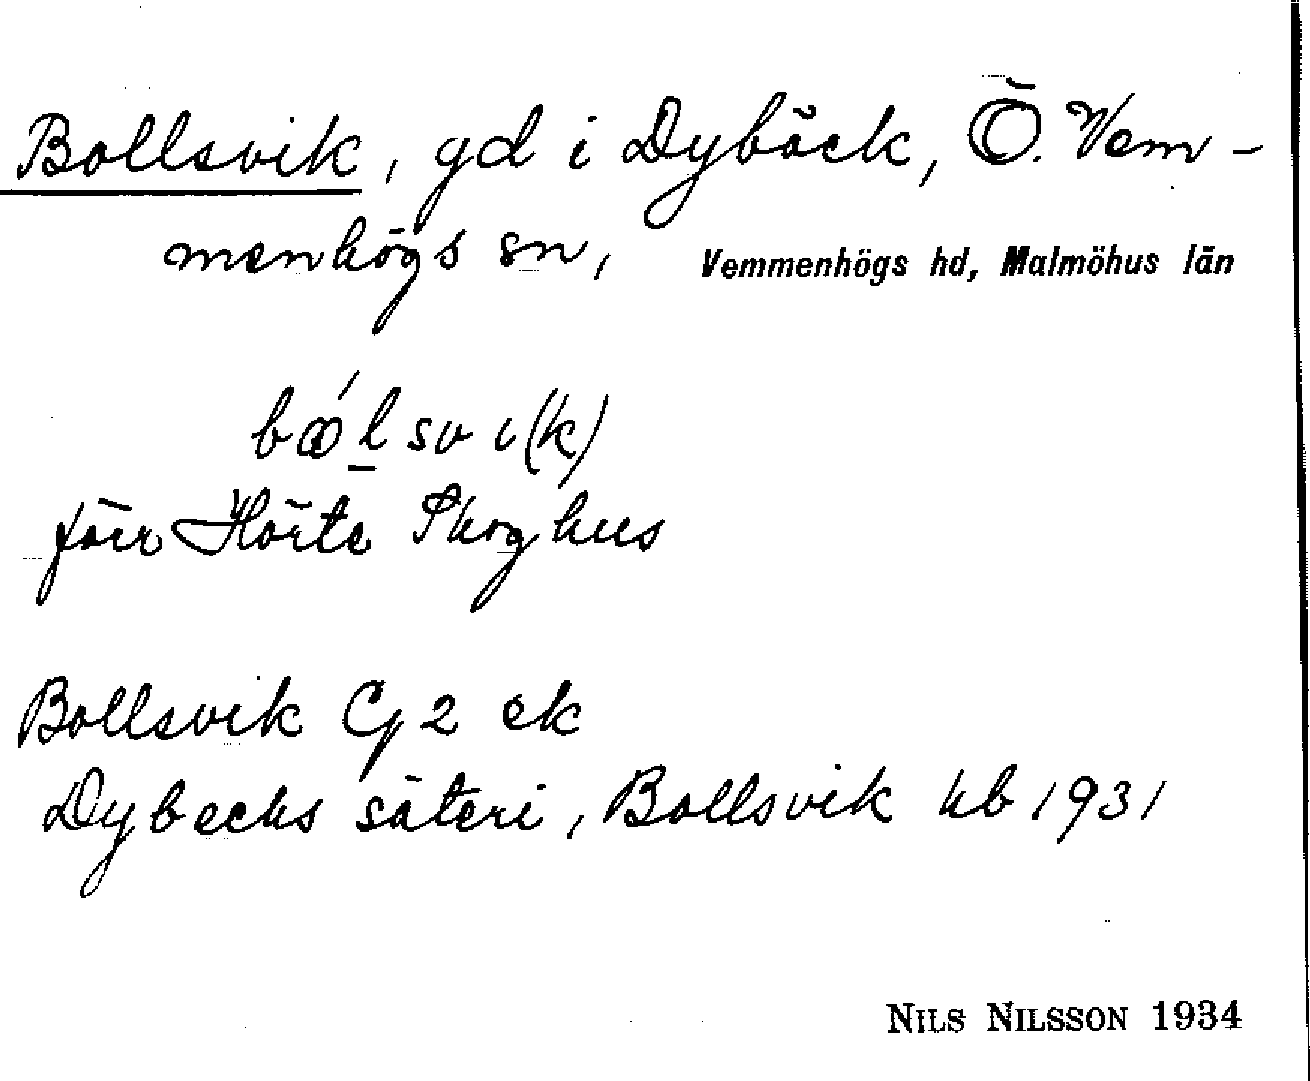 Bollsvik, gd i Dybäck, Ö. Vem-
menhögs sn, Vemmenhögs hd, Malmöhus län
bǿlsvi(k)
förr Hörte Skoghus
Bollsvik Cg 2 ek
Dybecks säteri, Bollsvik kb 1931
NILS NILSSON 1934